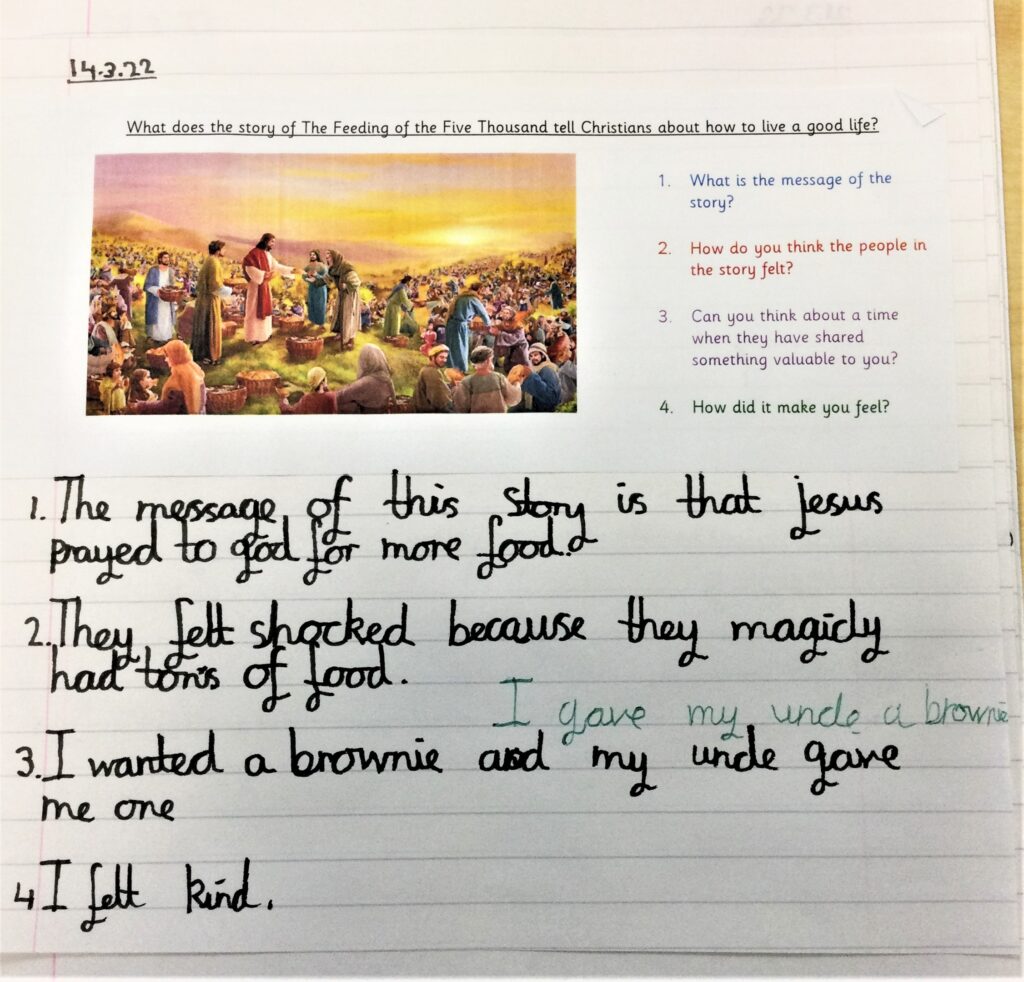 14.3.22
What does the story of The Feeding of the Five Thousand tell Christians about how to live a good life?
1. What is the message of the
story?
2. How do you think the people in
the story felt?
3. Can you think about a time
when they have shared
something valuable to you?
4. How did it make you feel?
1. The message of this story is that jesus
prayed to god for more food.
2. They felt shocked because they magicly
had tons of food.
I gave my uncle a brownie
3. I wanted a brownie and my uncle gave
me one
4 I felt kind.